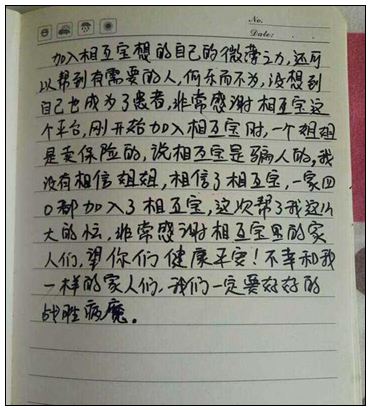 No.
Date:
加入相互宝想的自己的微薄之力,还可
以帮到有需要的人,何乐而不为,没想到
自己也成为了患者,非常感谢相互宝这
个平台,刚开始加入相互宝时,一个姐姐
是卖保险的,说相互宝是骗人的,我
没有相信姐姐,相信了相互宝,一家四
口都加入了相互宝,这次帮了我这么
大的忙,非常感谢相互宝里的家
人们,望你们健康平安!不幸和我
一样的家人们,我们一定要好好的
战胜病魔。